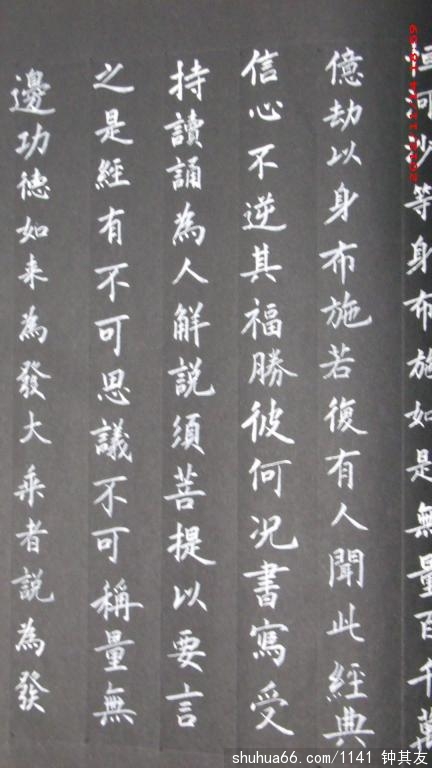 恒河沙等身布施如是無量百千萬
億劫以身布施若復有人聞此經典
信心不逆其福勝彼何況書寫受
持讀誦為人解說須菩提以要言
之是經有不可思議不可稱量無
邊功德如来為發大乘者說為發
shuhua66.com/1141 钟其友